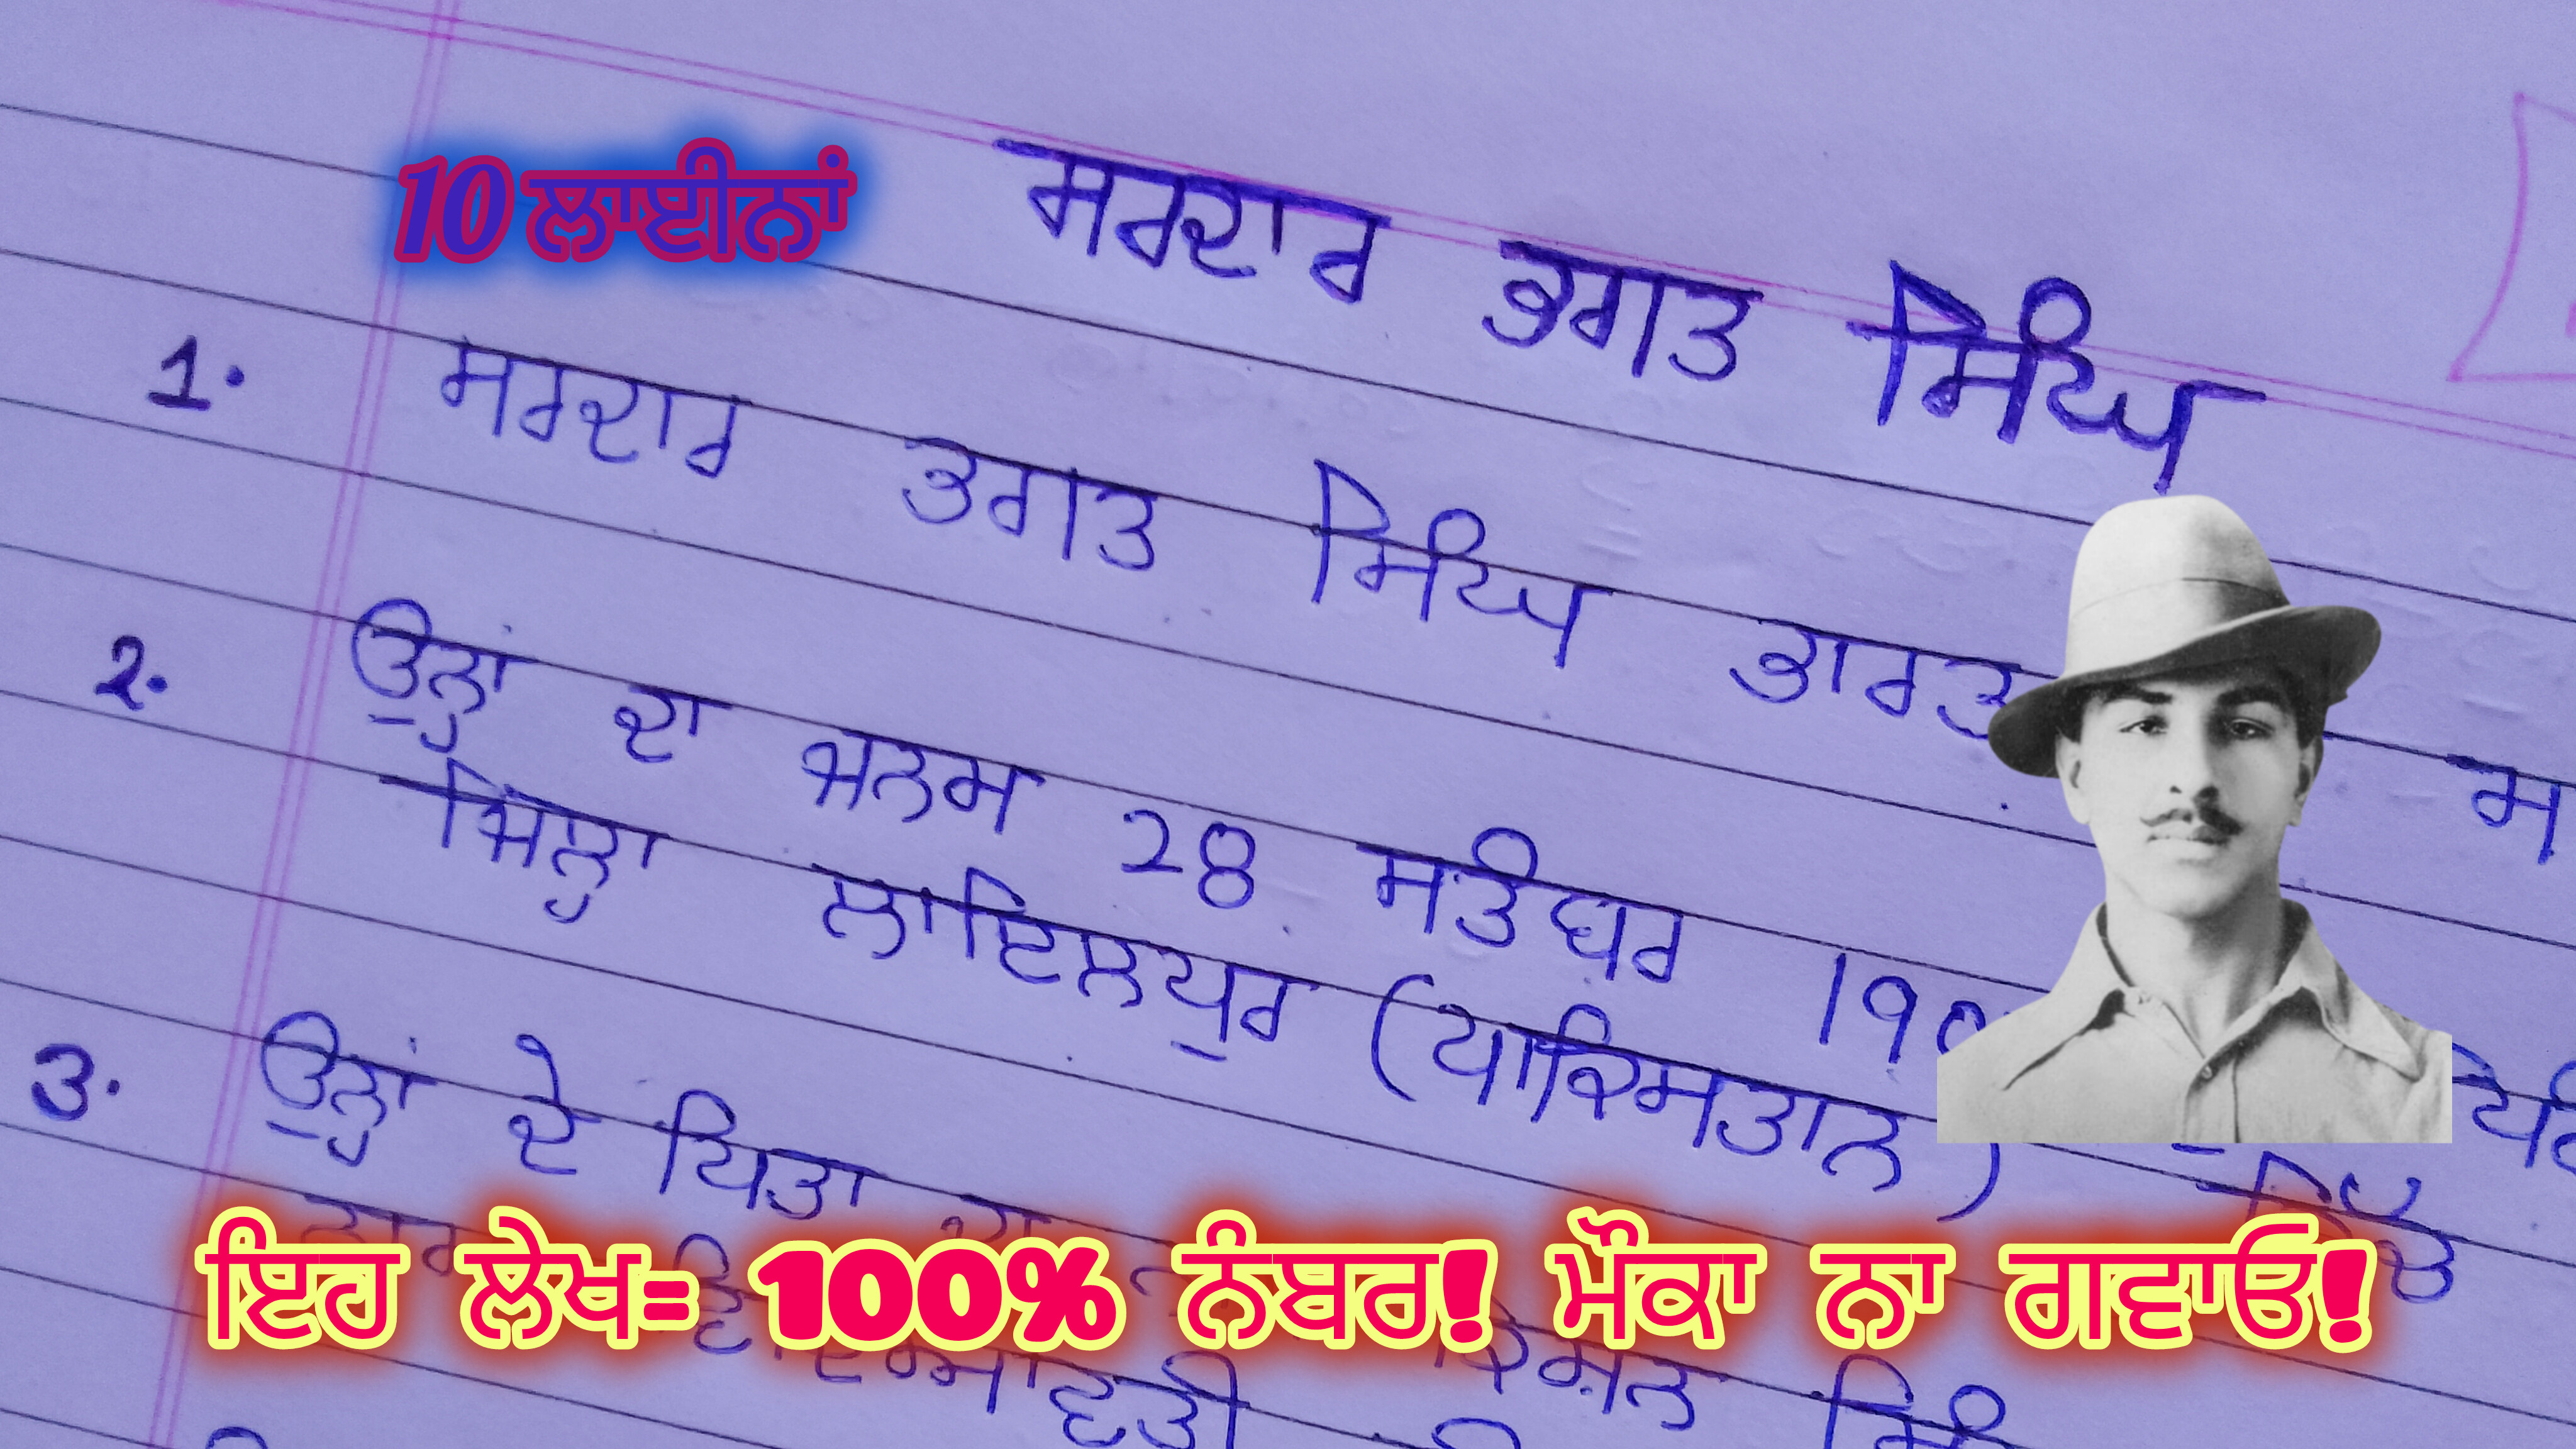 10 ਲਾਈਨਾਂ
ਸਰਦਾਰ ਭਗਤ ਸਿੰਘ
1. ਸਰਦਾਰ ਭਗਤ ਸਿੰਘ ਭਾਰਤ
2. ਉਨ੍ਹਾਂ ਦਾ ਜਨਮ 28 ਸਤੰਬਰ 190
ਜਿਲ੍ਹਾ ਲਾਇਲਪੁਰ (ਪਾਕਿਸਤਾਨ) ਵਿੱਚ
3. ਉਨ੍ਹਾਂ ਦੇ ਪਿਤਾ ਦਾ ਕਿਸ਼ਨ ਸਿੰ
ਇਹ ਲੇਖ= 100% ਨੰਬਰ! ਮੌਕਾ ਨਾ ਗਵਾਓ!